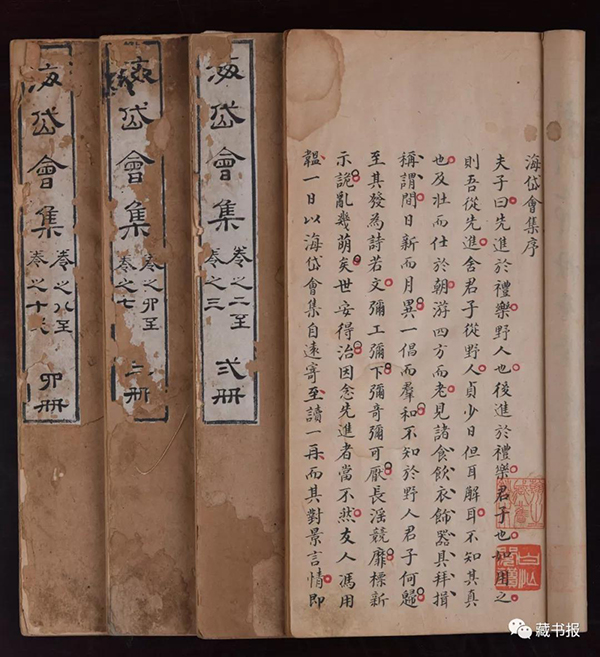 海岱會集序
夫子曰先進於禮樂野人也後進於禮樂君子也如用之
則吾從先進舍君子從野人貞少日但耳解耳不知其真
也及壯而仕於朝游四方而老見諸食飲衣飾器具拜揖
稱謂間日新而月異一倡而羣和不知於野人君子何歸
至其發為詩若文彌工彌下彌奇彌可厭長淫競靡標新
示詭亂幾萌矣世安得治因念先進者當不然友人馮用
韞一日以海岱會集自遠寄至讀一再而其對景言情即
海岱會集
卷之二至
卷之三
弍冊
海岱會集
卷之卯至
卷之七
三冊
海岱會集
卷之八至
卷之十
卯冊
藏书报